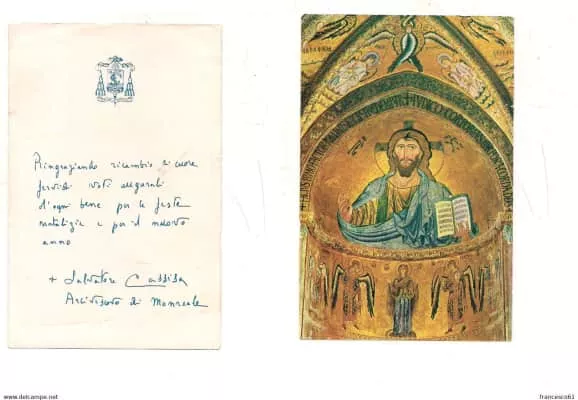 Ringraziando ricambio di cuore
fervidi voti auguranti
d'ogni bene per le feste
natalizie e per il nuovo
anno
+ Salvatore Cassisa
Arcivescovo di Monreale
www.delcampe.net
francesco61